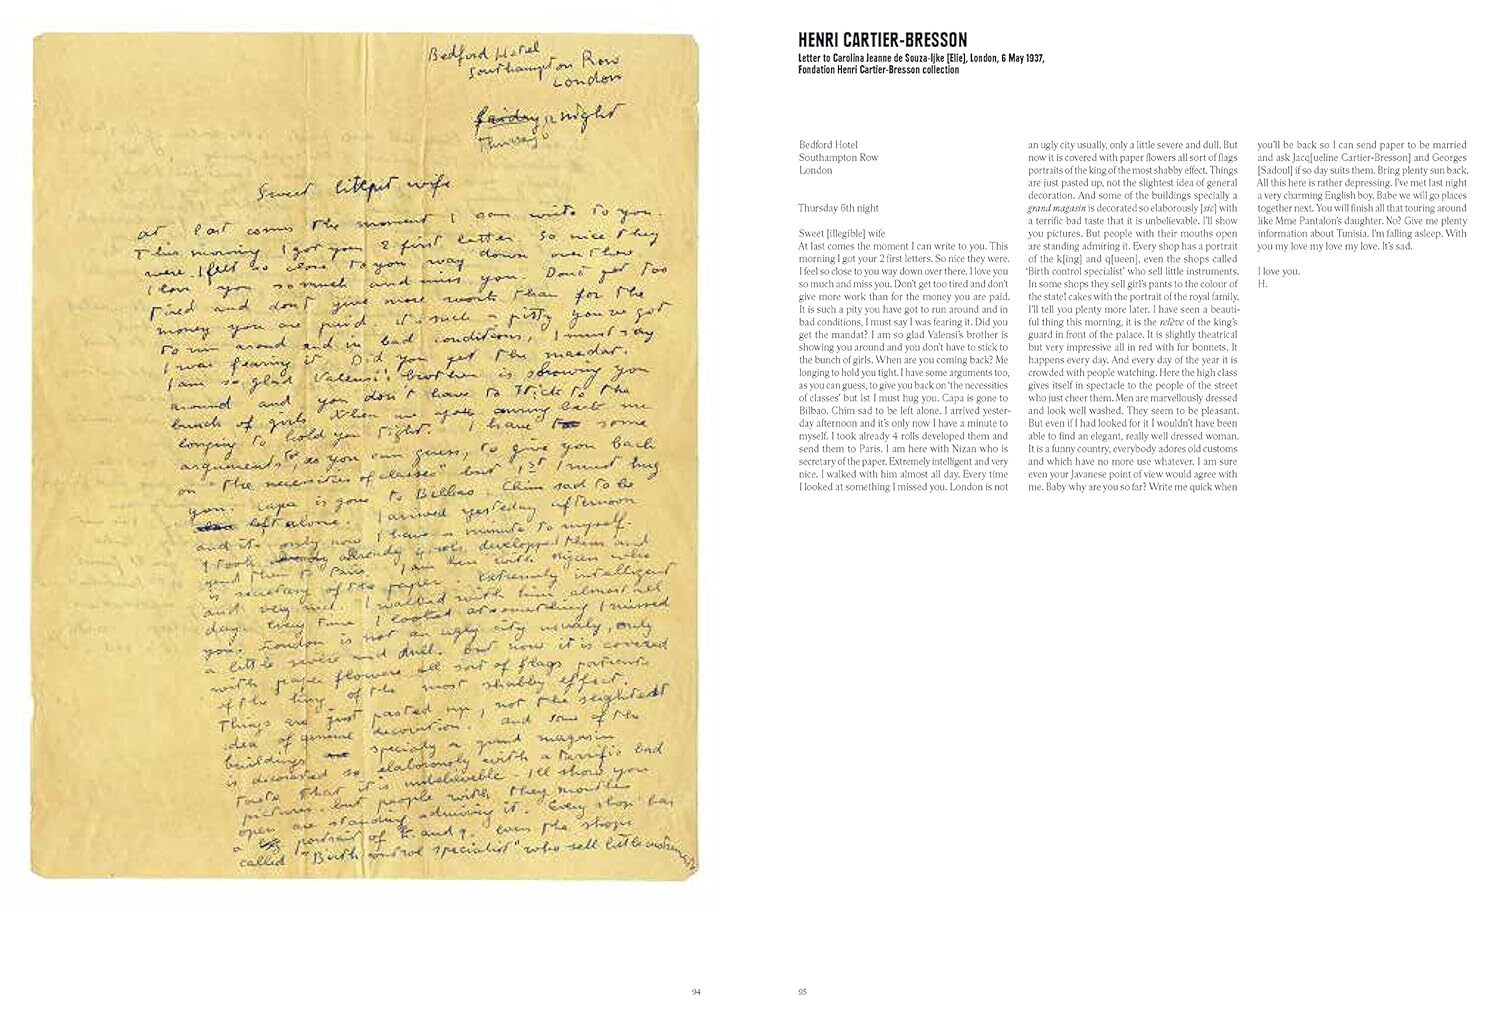 Bedford Hotel
Southampton Row
London
Friday 12 night
Thursday 6
Sweet wife
at last comes the moment I can write to you.
This morning I got your 2 first letters. So nice they
were. I feel so close to you way down over there
I love you so much and miss you. Don't get too
tired and don't give more work than for the
money you are paid. it's such a pitty you've got
to run around and in bad conditions, I must say
I was fearing it. Did you get the mandat.
I am so glad Valensi's brother is showing you
around and you don't have to stick to the
bunch of girls. When are you coming back me
longing to hold you tight. I have some
arguments too, as you can guess, to give you back
on "the necessities of classes" but 1st I must hug
you. Capa is gone to Bilbao. Chim sad to be
left alone. I arrived yesterday afternoon
and it's only now I have a minute to myself.
I took already 4 rols, developped them and
send them to Paris. I am here with Nizan who
is secretary of the paper. Extremely intelligent
and very nice. I walked with him almost all
day. Every time I looked at something I missed
you. London is not an ugly city usualy, only
a little severe and dull. But now it is covered
with paper flowers all sort of flags portraits
of the king of the most shabby effect.
Things are just pasted up, not the slightest
idea of general decoration. and some of the
buildings specialy a grand magasin
is decorated so elaborously with a terrific bad
taste that it is unbelievable. I'll show you
pictures. but people with they mouths
open are standing admiring it. Every shop has
a portrait of k. and q. even the shops
called "Birth control specialist" who sell little instruments
94
HENRI CARTIER-BRESSON
Letter to Carolina Jeanne de Souza-Ijke [Elie], London, 6 May 1937,
Fondation Henri Cartier-Bresson collection
Bedford Hotel
Southampton Row
London
Thursday 6th night
Sweet [illegible] wife
At last comes the moment I can write to you. This
morning I got your 2 first letters. So nice they were.
I feel so close to you way down over there. I love you
so much and miss you. Don't get too tired and don't
give more work than for the money you are paid.
It is such a pity you have got to run around and in
bad conditions, I must say I was fearing it. Did you
get the mandat? I am so glad Valensi's brother is
showing you around and you don't have to stick to
the bunch of girls. When are you coming back? Me
longing to hold you tight. I have some arguments too,
as you can guess, to give you back on 'the necessities
of classes' but 1st I must hug you. Capa is gone to
Bilbao. Chim sad to be left alone. I arrived yester-
day afternoon and it's only now I have a minute to
myself. I took already 4 rolls developed them and
send them to Paris. I am here with Nizan who is
secretary of the paper. Extremely intelligent and very
nice. I walked with him almost all day. Every time
I looked at something I missed you. London is not
an ugly city usually, only a little severe and dull. But
now it is covered with paper flowers all sort of flags
portraits of the king of the most shabby effect. Things
are just pasted up, not the slightest idea of general
decoration. And some of the buildings specially a
grand magasin is decorated so elaborously [sic] with
a terrific bad taste that it is unbelievable. I'll show
you pictures. But people with their mouths open
are standing admiring it. Every shop has a portrait
of the k[ing] and q[ueen], even the shops called
'Birth control specialist' who sell little instruments.
In some shops they sell girl's pants to the colour of
the state! cakes with the portrait of the royal family.
I'll tell you plenty more later. I have seen a beauti-
ful thing this morning, it is the relève of the king's
guard in front of the palace. It is slightly theatrical
but very impressive all in red with fur bonnets. It
happens every day. And every day of the year it is
crowded with people watching. Here the high class
gives itself in spectacle to the people of the street
who just cheer them. Men are marvellously dressed
and look well washed. They seem to be pleasant.
But even if I had looked for it I wouldn't have been
able to find an elegant, really well dressed woman.
It is a funny country, everybody adores old customs
and which have no more use whatever. I am sure
even your Javanese point of view would agree with
me. Baby why are you so far? Write me quick when
you'll be back so I can send paper to be married
and ask Jacq[ueline Cartier-Bresson] and Georges
[Sadoul] if so day suits them. Bring plenty sun back.
All this here is rather depressing. I've met last night
a very charming English boy. Babe we will go places
together next. You will finish all that touring around
like Mme Pantalon's daughter. No? Give me plenty
information about Tunisia. I'm falling asleep. With
you my love my love my love. It's sad.
I love you.
H.
95